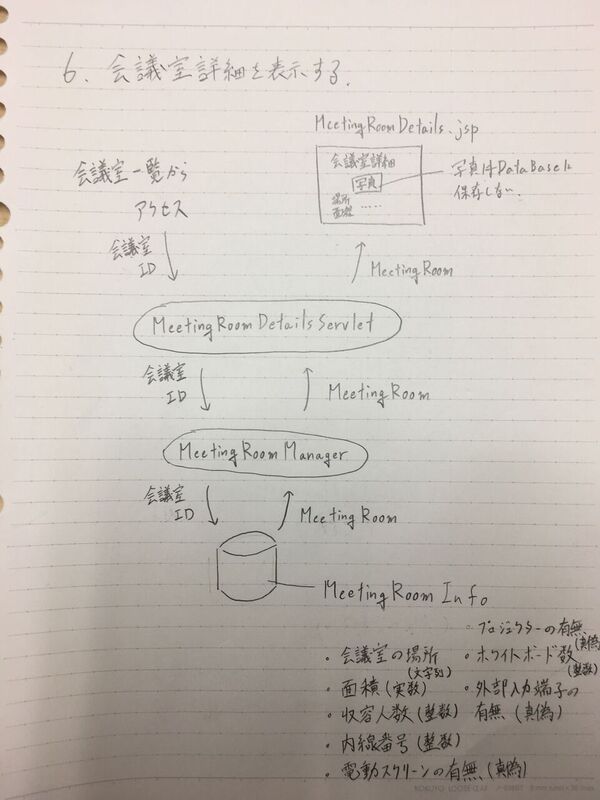 6. 会議室詳細を表示する.
MeetingRoomDetails.jsp
会議室詳細
写真
場所
面積 .....
写真はDataBaseに
保存しない.
会議室一覧から
アクセス
会議室
ID
MeetingRoom
MeetingRoomDetailsServlet
会議室
ID
MeetingRoom
MeetingRoomManager
会議室
ID
MeetingRoom
MeetingRoom Info
・会議室の場所
(文字列)
・面積(実数)
・収容人数(整数)
・内線番号(整数)
・電動スクリーンの有無(真偽)
・プロジェクターの有無
(真偽)
・ホワイトボード数
(整数)
・外部入力端子の
有無(真偽)
KOKUYO LOOSE-LEAF